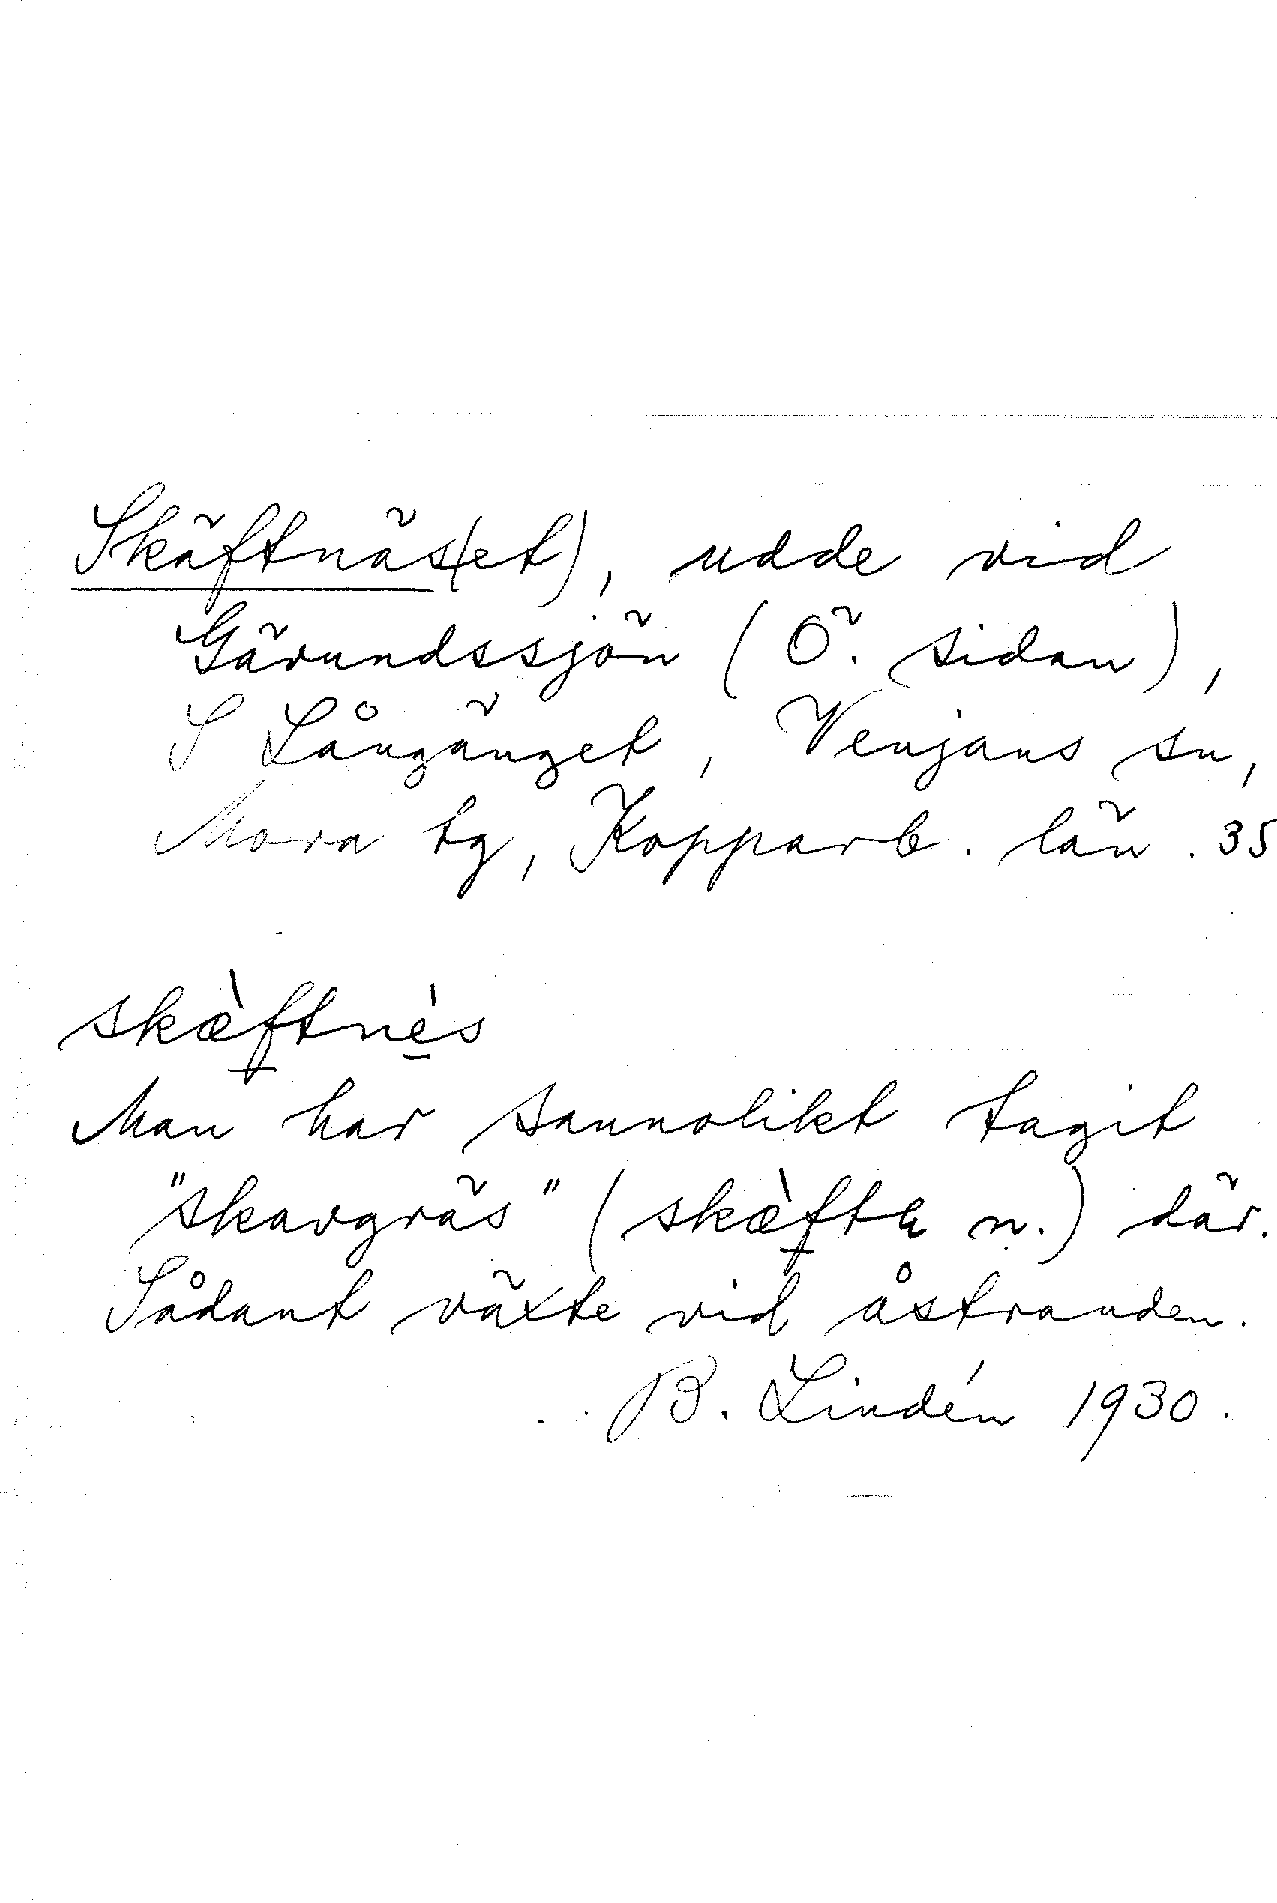 Skäftnäs(et), udde vid
Gävundssjön (Ö. sidan),
S Långänget, Venjans sn,
Mora tg, Kopparb. län. 35
skæ̀ftnés
Man har sannolikt tagit
"skavgräs" (skæ̀ft n.) där.
Sådant växte vid åstranden.
B. Lindén 1930.